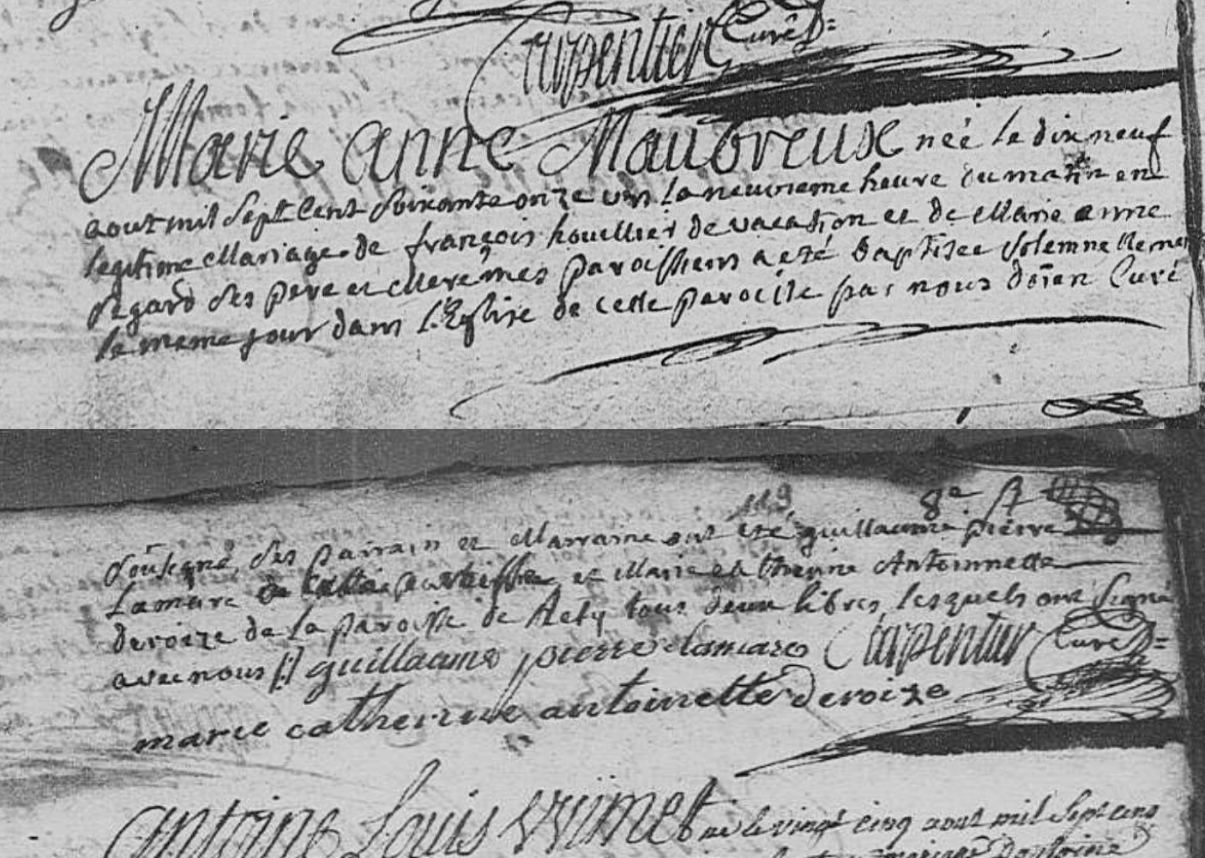 Carpentier Curé D=
Marie anne Maubreux née le dix neuf
aout mil Sept Cent Soixante onze vers la neuvieme heure du matin en
legitime Mariage de françois houillier de vacation et de Marie anne
Legard Ses pere et Mere mes paroissiens a eté Baptisée Solemnellement
le meme jour dans l'Eglise de cette paroisse par nous doïen Curé
113 8e A
Soussigné, Ses parrain et Marraine ont été guillaume pierre
Lamare de cette paroisse et Marie Catherine Antoinnette
deroize de la paroisse de Rety tous deux libres, lesquels ont Signé
avec nous [:] guillaume pierre lamare Carpentier Curé D=
marie catherine antoinette deroize
antoine Louis né le vingt cinq aout mil Sept cens
mariage D'antoine